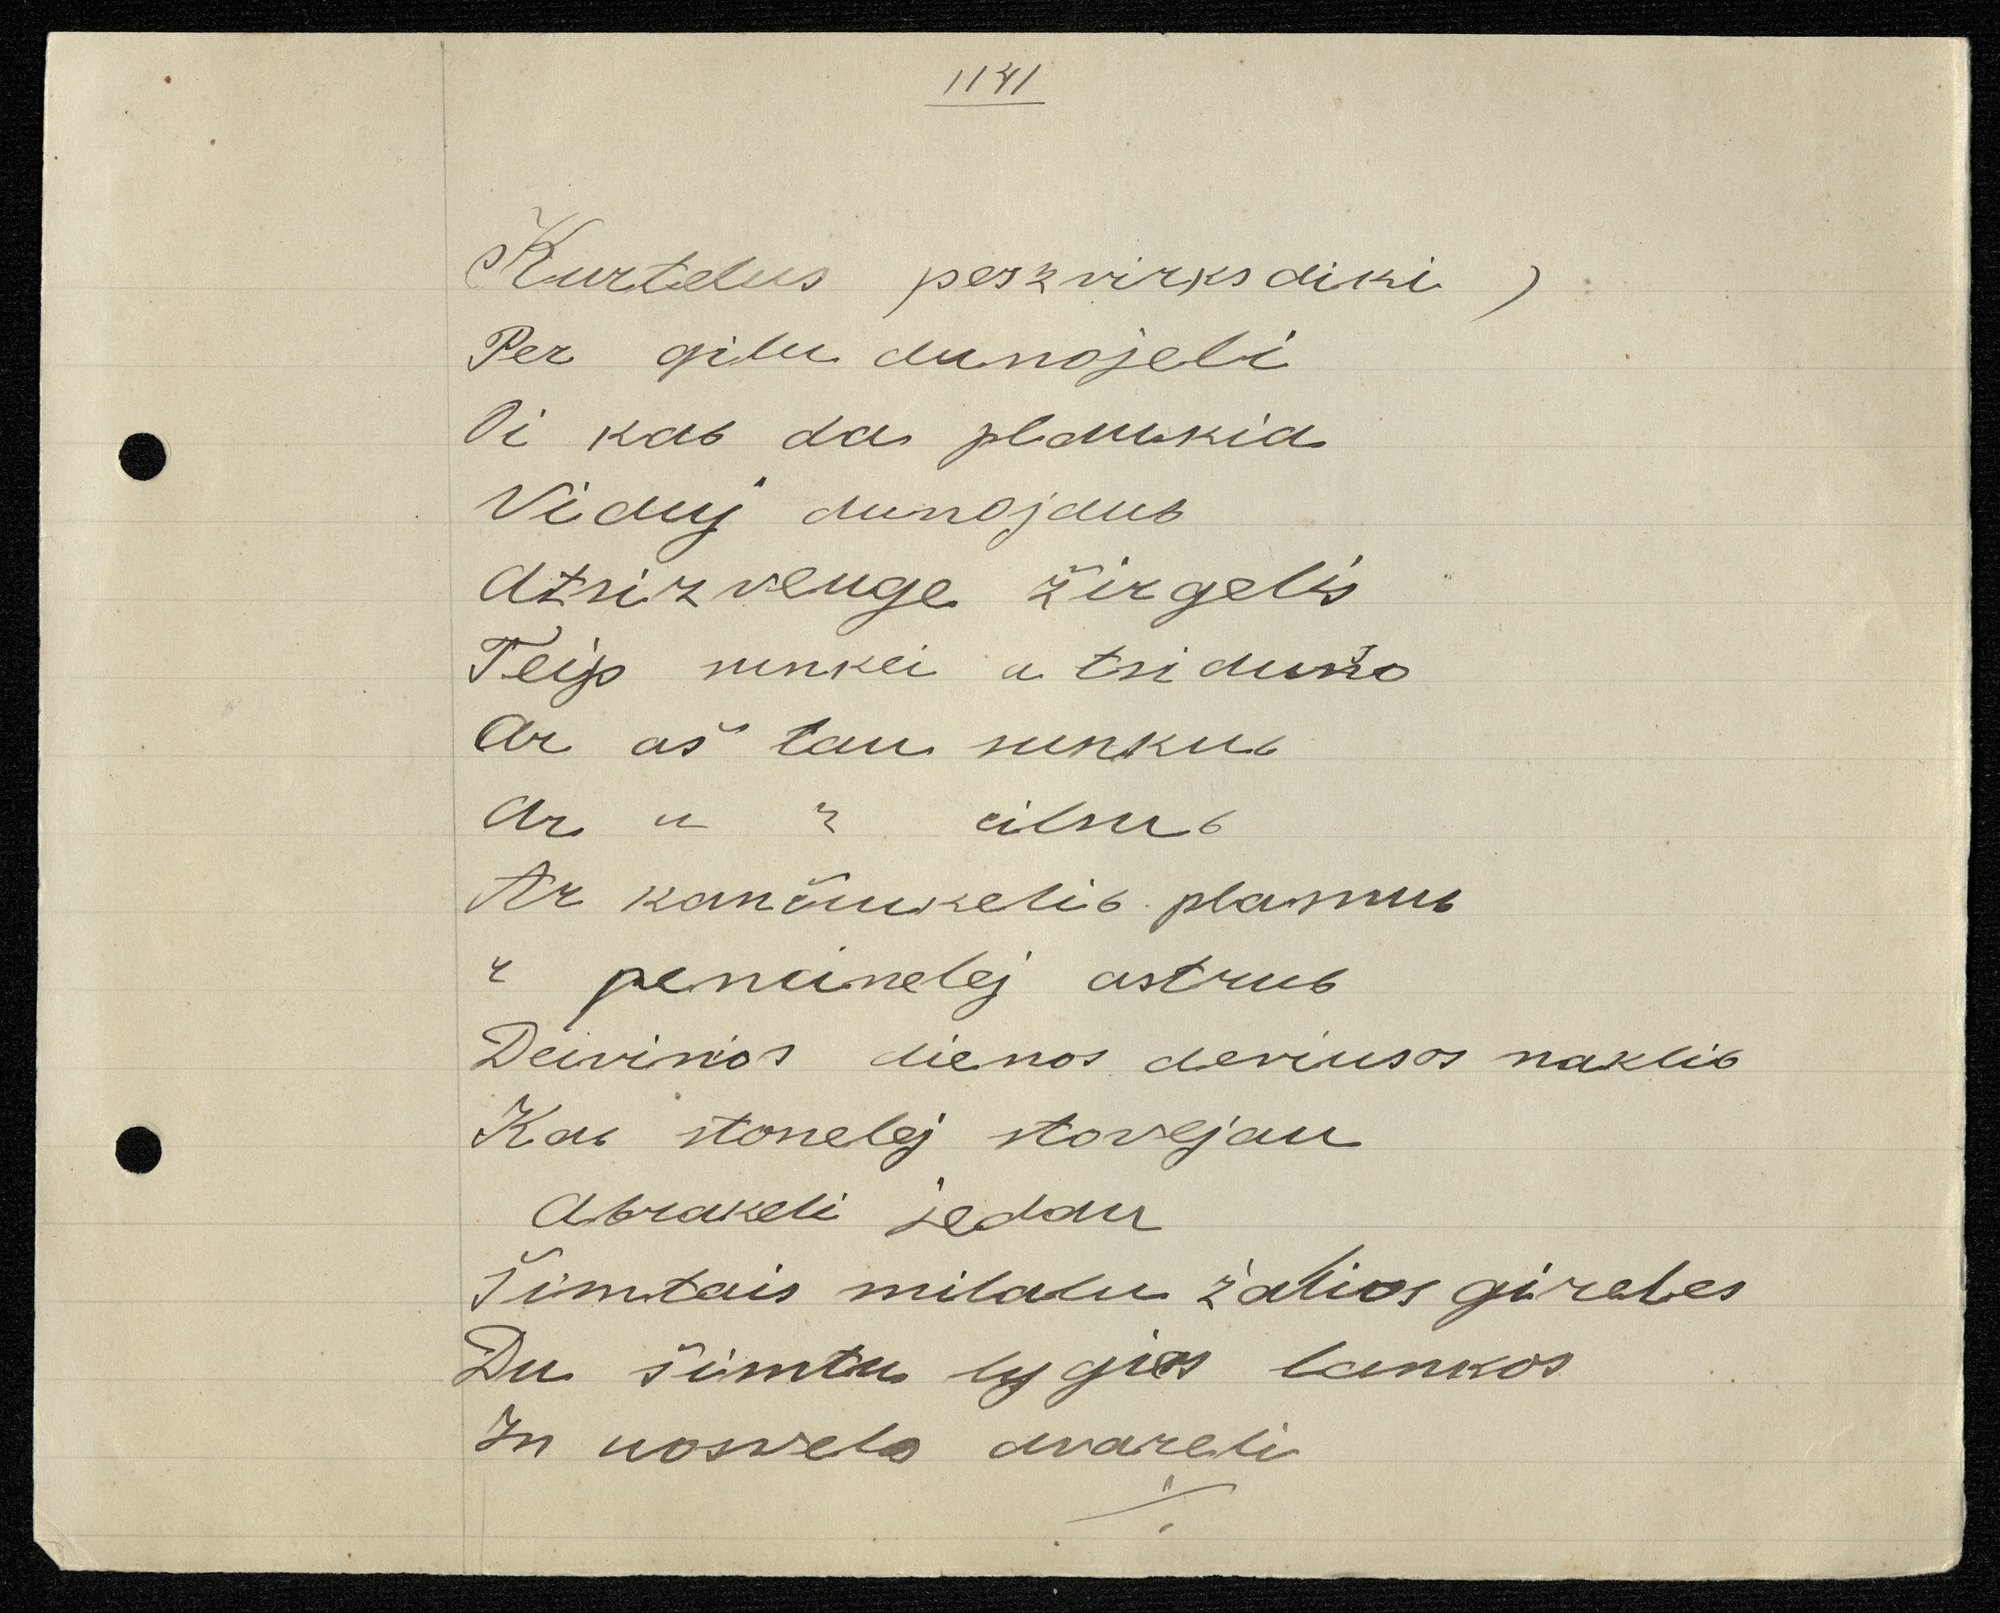 1141
(Kurtelus perzvirksdiki)
Per gilu dunojeli
Oi kab da plaukia
Viduj dunojaus
Atsizvenge žirgelis
Teip sunkei atsiduso
Ar aš tau sunkus
Ar " " ilsus
Ar kančiukelis plasmus
" pencinelej astrus
Devinios dienos devinsos naktis
Kab stonelej stovejau
Abrakeli jedau
Šimtais milalu žalios gireles
Du šimtu lygios lankos
In uosvelo dvareli